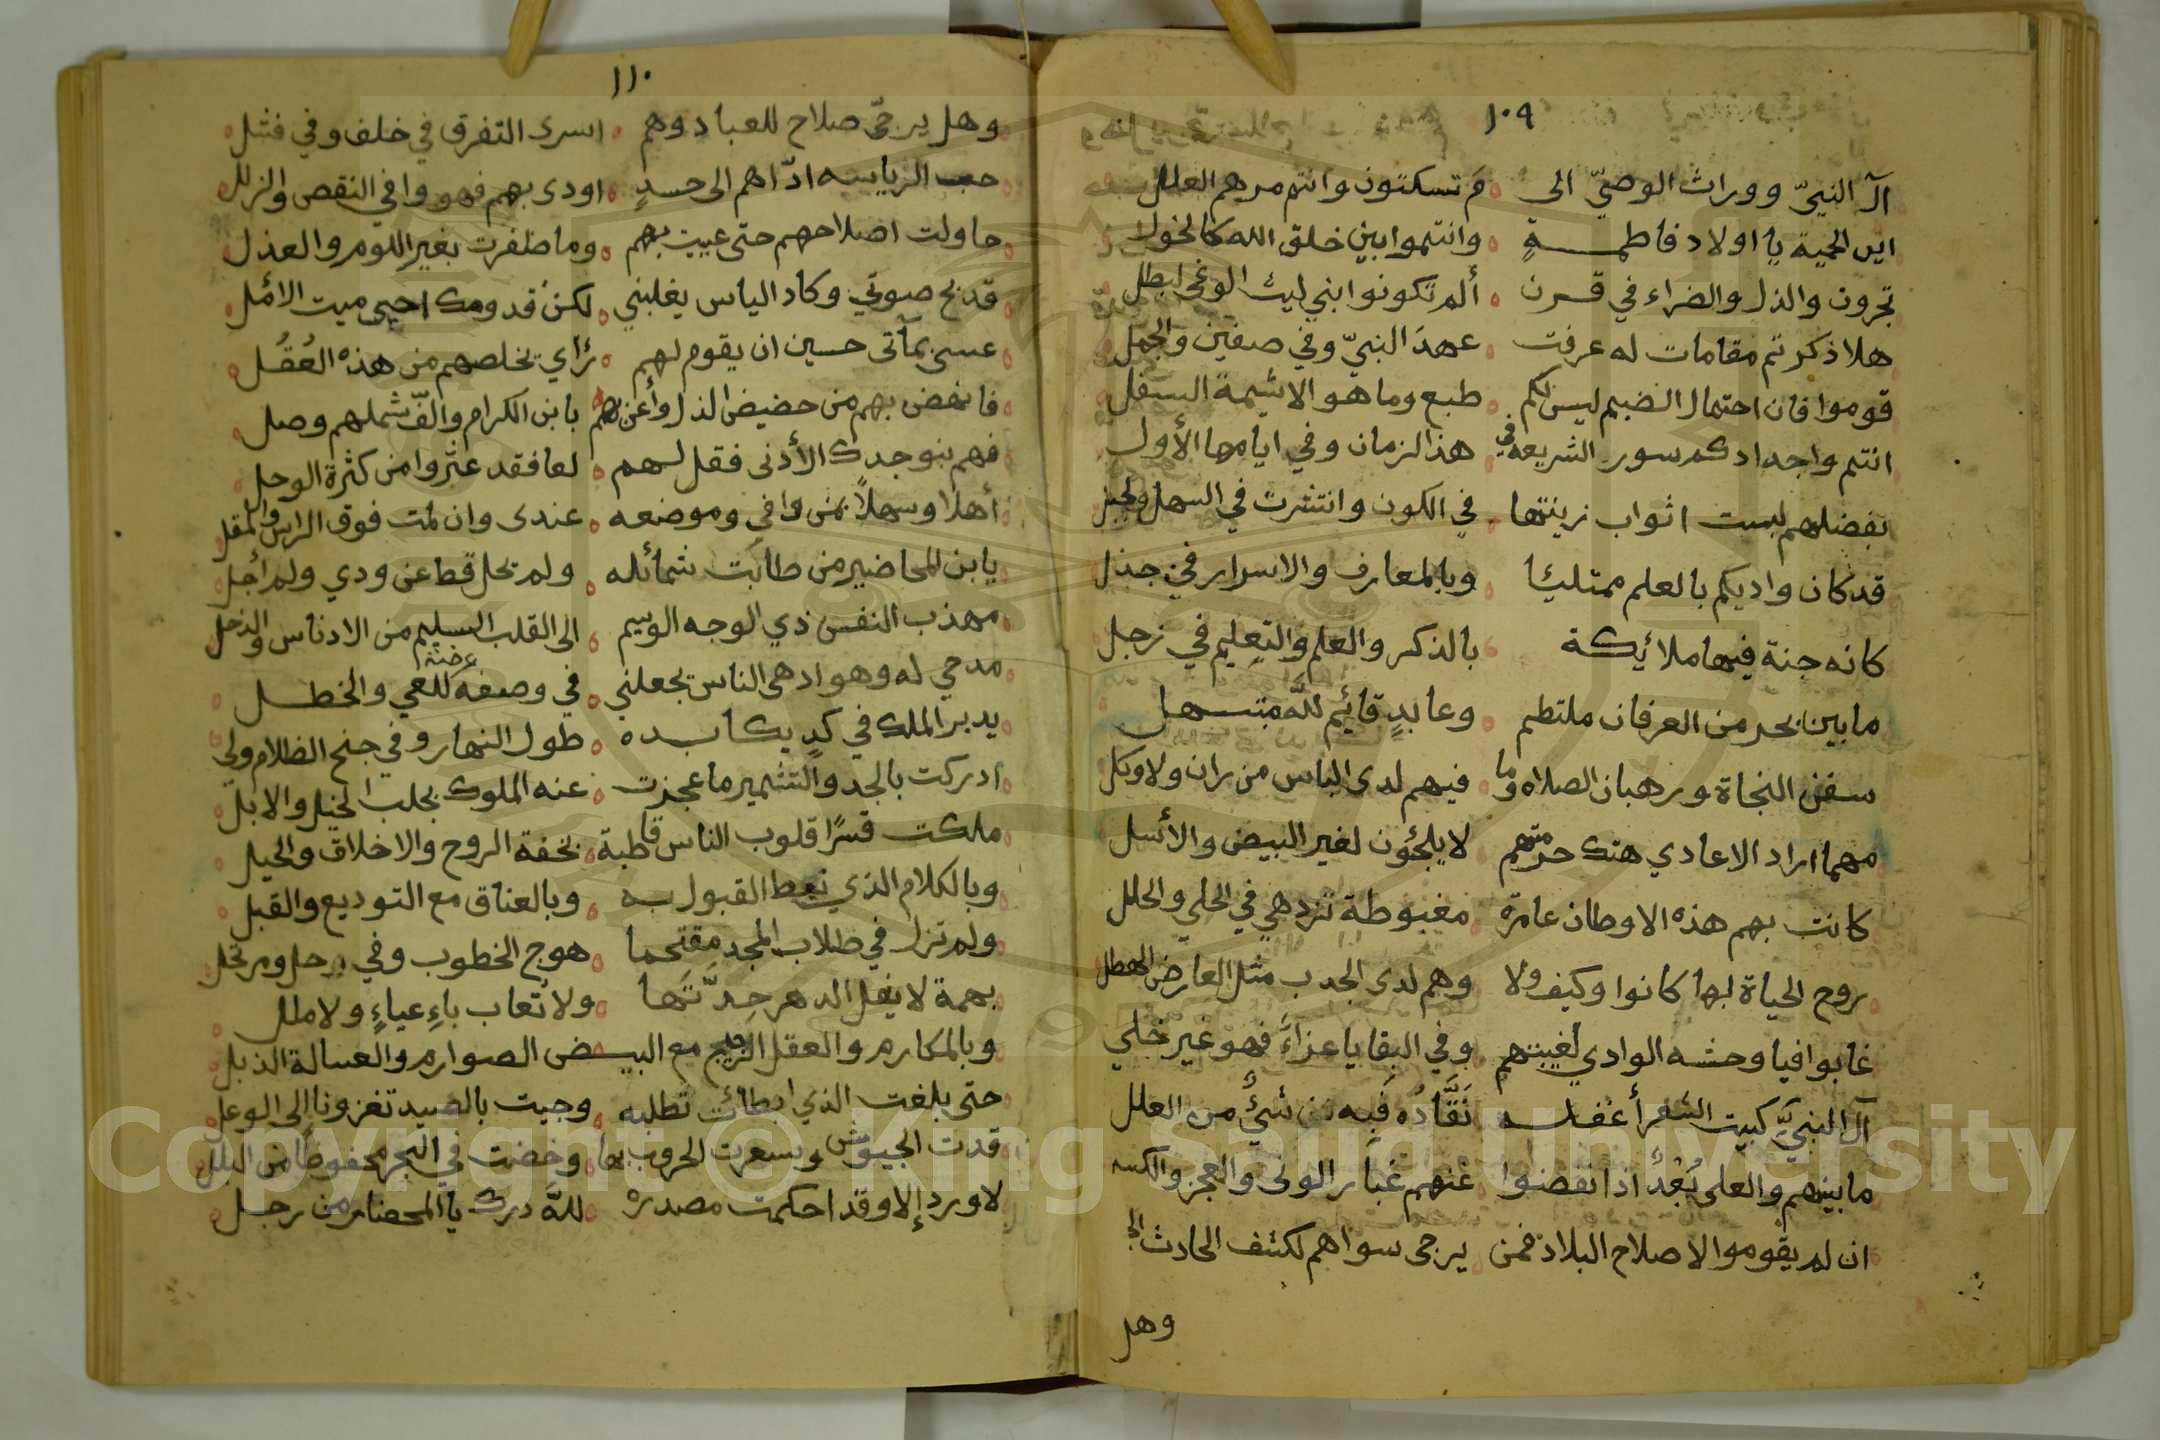 ١٠٩
آل النبيّ ووراث الوصيّ الى مَ تسكتون وانتم مرهم العلل
اين الحمية يا اولاد فاطمـــةٍ وانتموا بين خلق الله كالخول
تجرون والذل والضراء في قــرن ألم تكونوا بني ليث الوغى البطل
هلا ذكرتم مقامات له عرفت عهدَ النبيّ وفي صفين والجمل
قوموا فان احتمال الضيم ليس لكم طبع وما هو الا شيمة السفل
انتم واجدادكم سور الشريعه في هذا الزمان وفي ايامها الأول
بفضلهم لبست اثواب زينتها في الكون وانتشرت في السهل والجبل
قد كان واديكم بالعلم ممتلئا وبالمعارف والاسرار في جذل
كانه جنة فيها ملائيكة بالذكر والعلم والتعليم في زجل
ما بين بحر من العرفان ملتطم وعابدٍ قائيم للَّه مبتــهل
سفن النجاة ورهبان الصلاه وما فيهم لدى الباس من ران ولا وكل
مهما اراد الاعادي هتك حرمتهم لا يلجئون لغير البيض والأسل
كانت بهم هذه الاوطان عامرة مغبوطة تزدهي في الحلي والحلل
روح الحياة لها كانوا وكيف ولا وهم لدى الجدب مثل العارض الهطل
غابوا فيا وحشه الوادي لغيبتهم وفي البقايا عزاءَ فهو غير خلي
آل النبيِّ كبيت الشعر أغفلــه نَقَّادُه فَبِه من شيئٌ من العلل
ما بينهم والعلى بُعْدٌ اذا نفضوا عنهم غبار الونى والعجز والكسل
ان لم يقوموا لاصلاح البلاد فمن يرجى سواهم لكشف الحادث الجلل
وهل
١١٠
وهل يرجىّ صلاح للعباد وهم اسرى التفرق في خلف وفي فشل
حب الرياسه ادّاهم الى حسدٍ اودى بهم فهووا في النقص والزلل
حاولت اصلاحهم حتى عييت بهم وما ظفرت بغير اللوم والعذل
قد بح صوتي وكاد الياس يغلبني لكن قدومك احيى ميت الامُل
عسى بمآتى حسين ان يقوم لهم رُاي يخلصهم من هذه العُقُل
فانهض بهم من حضيض الذل وأعن بهم يا بن الكرام والّف شملهم وصل
فهم بنو جدك الأدنى فقل لهم لعا فقد عثروا من كثرة الوحل
أهلا وسهلاً بمن وافي وموضعه عندى وان لمت فوق الراس والمقل
يا بن المحاضير من طابَت شمائله ولم يحل قط عن ودي ولم أحل
مهذب النفس ذي الوجه الوسيم الى القلب السليم من الادناس والدخل
مدحي له وهو ادهى الناس يجعلني في وصفه عرضة للعي والخطـــل
يدبر الملك في كدٍ يكابــده طول النهار وفي جنح الظلام ولي
ادركت بالجد والتشمير ما عجزت عنه الملوك بجلب الخيل والابل
ملكت قسرًا قلوب الناس قاطبة بخفة الروح والاخلاق والحيل
وبالكلام الذي نيط القبول به وبالعناق مع التوديع والقبل
ولم تزل في طلاب المجد مقتحما هوج الخطوب وفي حل ومرتحل
بهمة لا يفل الدهر حِدَّتَها ولا تُعاب باءِعياءٍ ولا ملل
وبالمكارم والعقل الرجيح مع البيــض الصوارم والعسالة الذبل
حتى بلغت الذي ابطائت تطلبه وجيت بالصيد تغزونا الى الوعل
قدت الجيوش وسعرت الحروب بها وخضت في البحر محفوظا من البلل
لا ورد إلا وقد احكمت مصدره للَّه درك يا المحضار من رجــل
Copyright © King Saud University